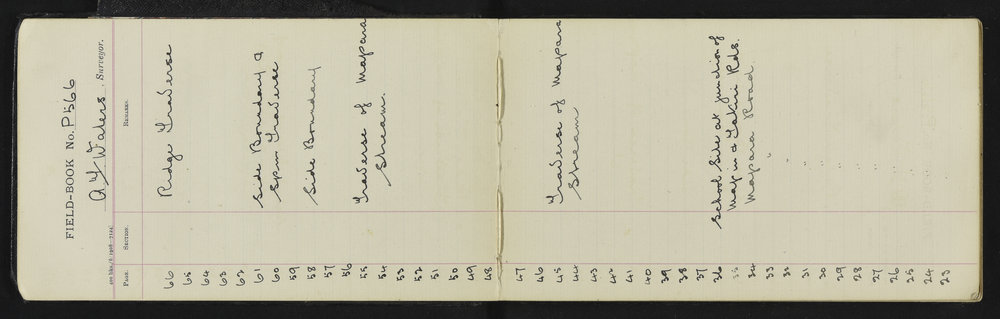 FIELD-BOOK No. P566
A Y Waters. Surveyor.
PAGE. SECTION. REMARKS.
66 Ridge Traverse
65
64
63
62
61 Side Boundary &
60 Spur Traverse
59
58 Side Boundary
57
56
55 Traverse of Mapara
54 Stream.
53
52
51
50
49
48
47
46
45 Traverse of Mapara
44 Stream
43
42
41
40
39
38
37
36 School Site at junction of
35 Mapiu & Takiri Rds.
34 Mapara Road.
33 "
32 "
31 "
30 "
29
28
27
26
25
24
23